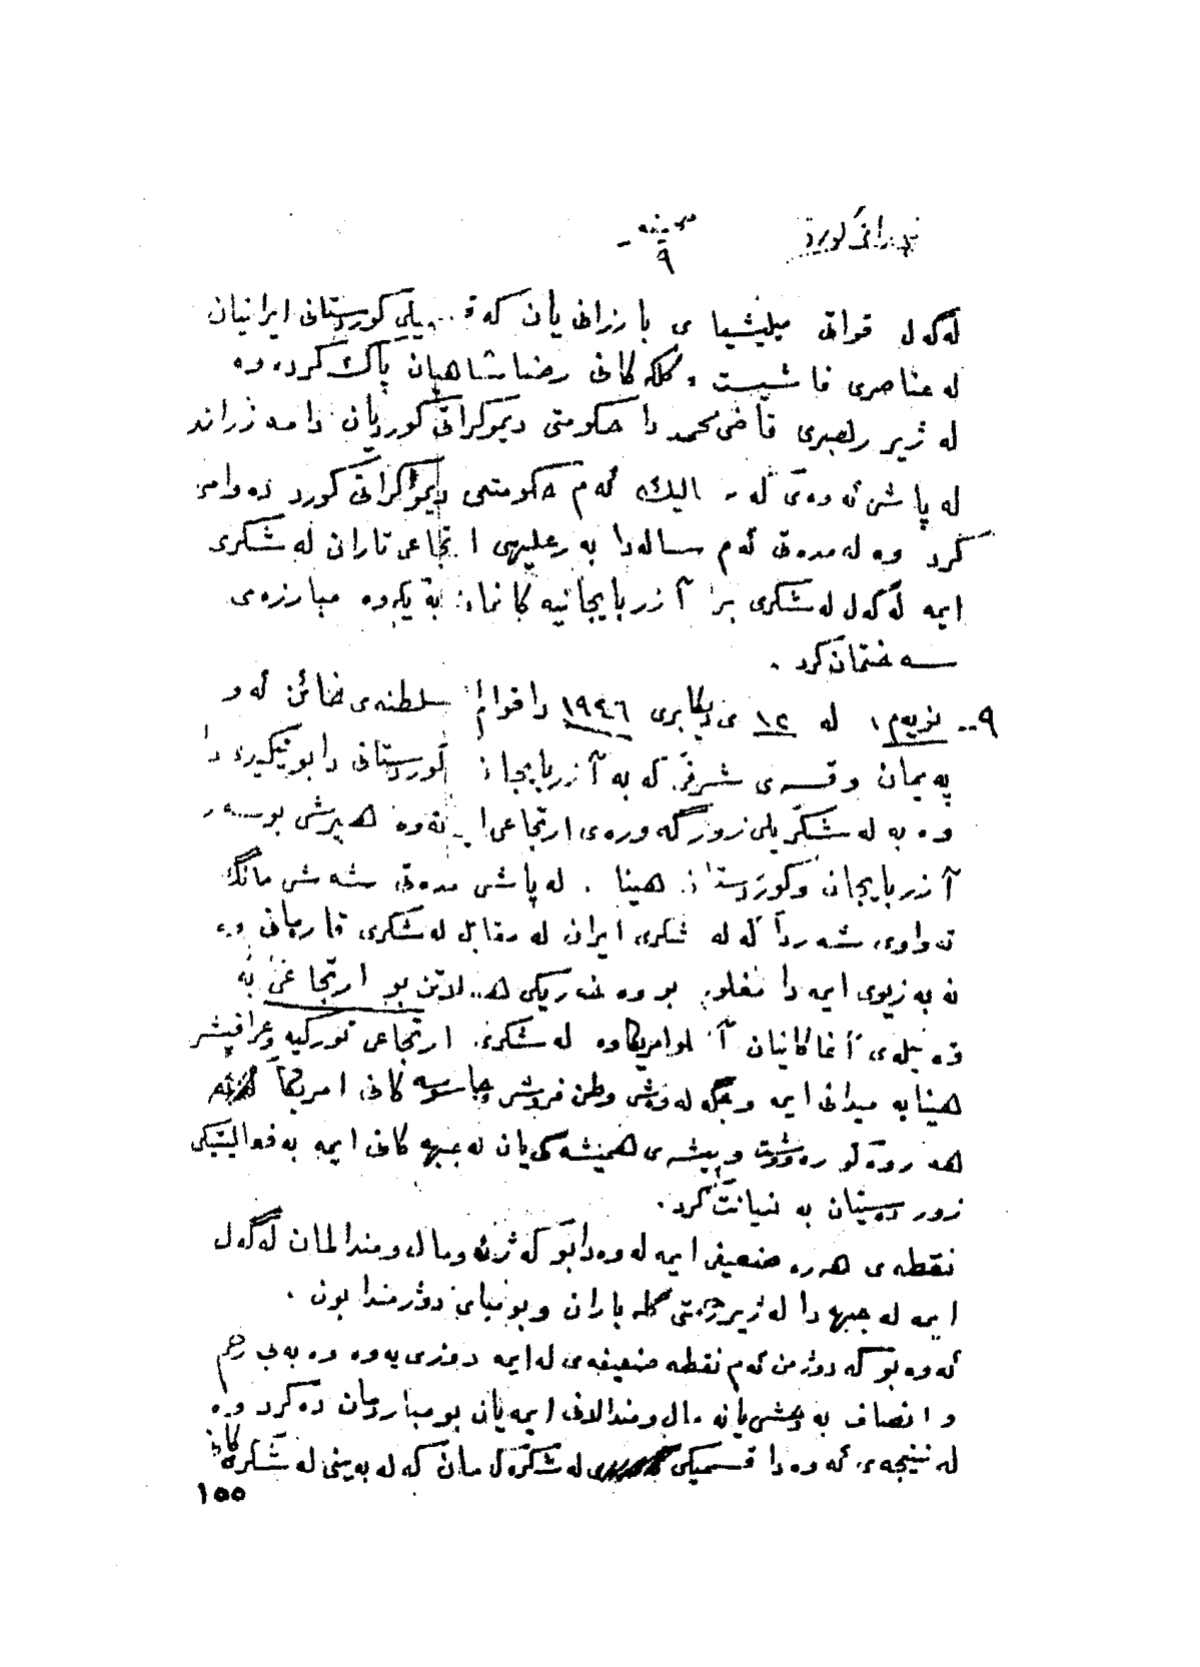 صحیفه
٩
لەگەل قواتی میلیشیا ی بارزانی یان کە کوردستانی ایرانیان
لە عناصری فاشیست و کلکەکانی رضا شاهیان پاک کردە وە
لە ژیر رهبری قاضی محمد دا حکومتی دیموکراتی کوردیان دامەزراند
لە پاش ئەوەی لە الیك ئەم حکومتی دیموکراتی کورد دەوامی
کرد وە لە مدەتی ئەم سالەدا بە رعلیهی ارتجاعی تاران لەشکری
ایمە لەگەل لەشکری برا آزربایجانیەکانمان بە یکەوە مبارزەی
سەختمان کرد .
٩-- نویەم، لە ١٢ ی دیکابری ١٩٤٦ دا قوام سلطنەی خائن ئەو
پەیمان وقسەی شرفی کە بە آزربایجان کوردستانی دابو
وە بە لەشکریلی زور گەورەی ارتجاعی هیرشی بوسەر
آزربایجان وکوردستان هینا . لە پاش مدەتی شەش مانگ
تەواوی شەردا کە لە شکری ایران لە مقابل لەشکری قارەمانی وە
نە بەزیوی ایمە دا مغلوب بو وە خەریکی هەلاتن بو ارتجاعی بە
وەسیلەی آغاکانیان امریکاوە لەشکری ارتجاعی تورکیە وعراقیشی
هینایە میدانی ایمە و وطن فروش وجاسوسەکانی امریکا
هەروەکو رەوشت وپیشەی همیشەکی یان لە جبهەکانی ایمە بە فعالیتیکی
زور دەستیان بە خیانت کرد .
نقطەی هەرە ضعیفی ایمە لەوەدابو کە ژن ومال ومندالمان لەگەل
ایمە لە جبهە دا لە ژیر گلە باران وبومبای دوژمندا بون .
ئەوە بو کە دوژمن ئەم نقطە ضعیفەی لە ایمە دوزی یەوە وە بەبی رحم
و انصاف بە وحشی یانە مال ومندالانی ایمەیان بومباردمان دەکرد وە
لە نتیجەی ئەوە دا قسمیکی لەشکرەکەمان کە لە بەینی لەشکرەکانی
١٥٥